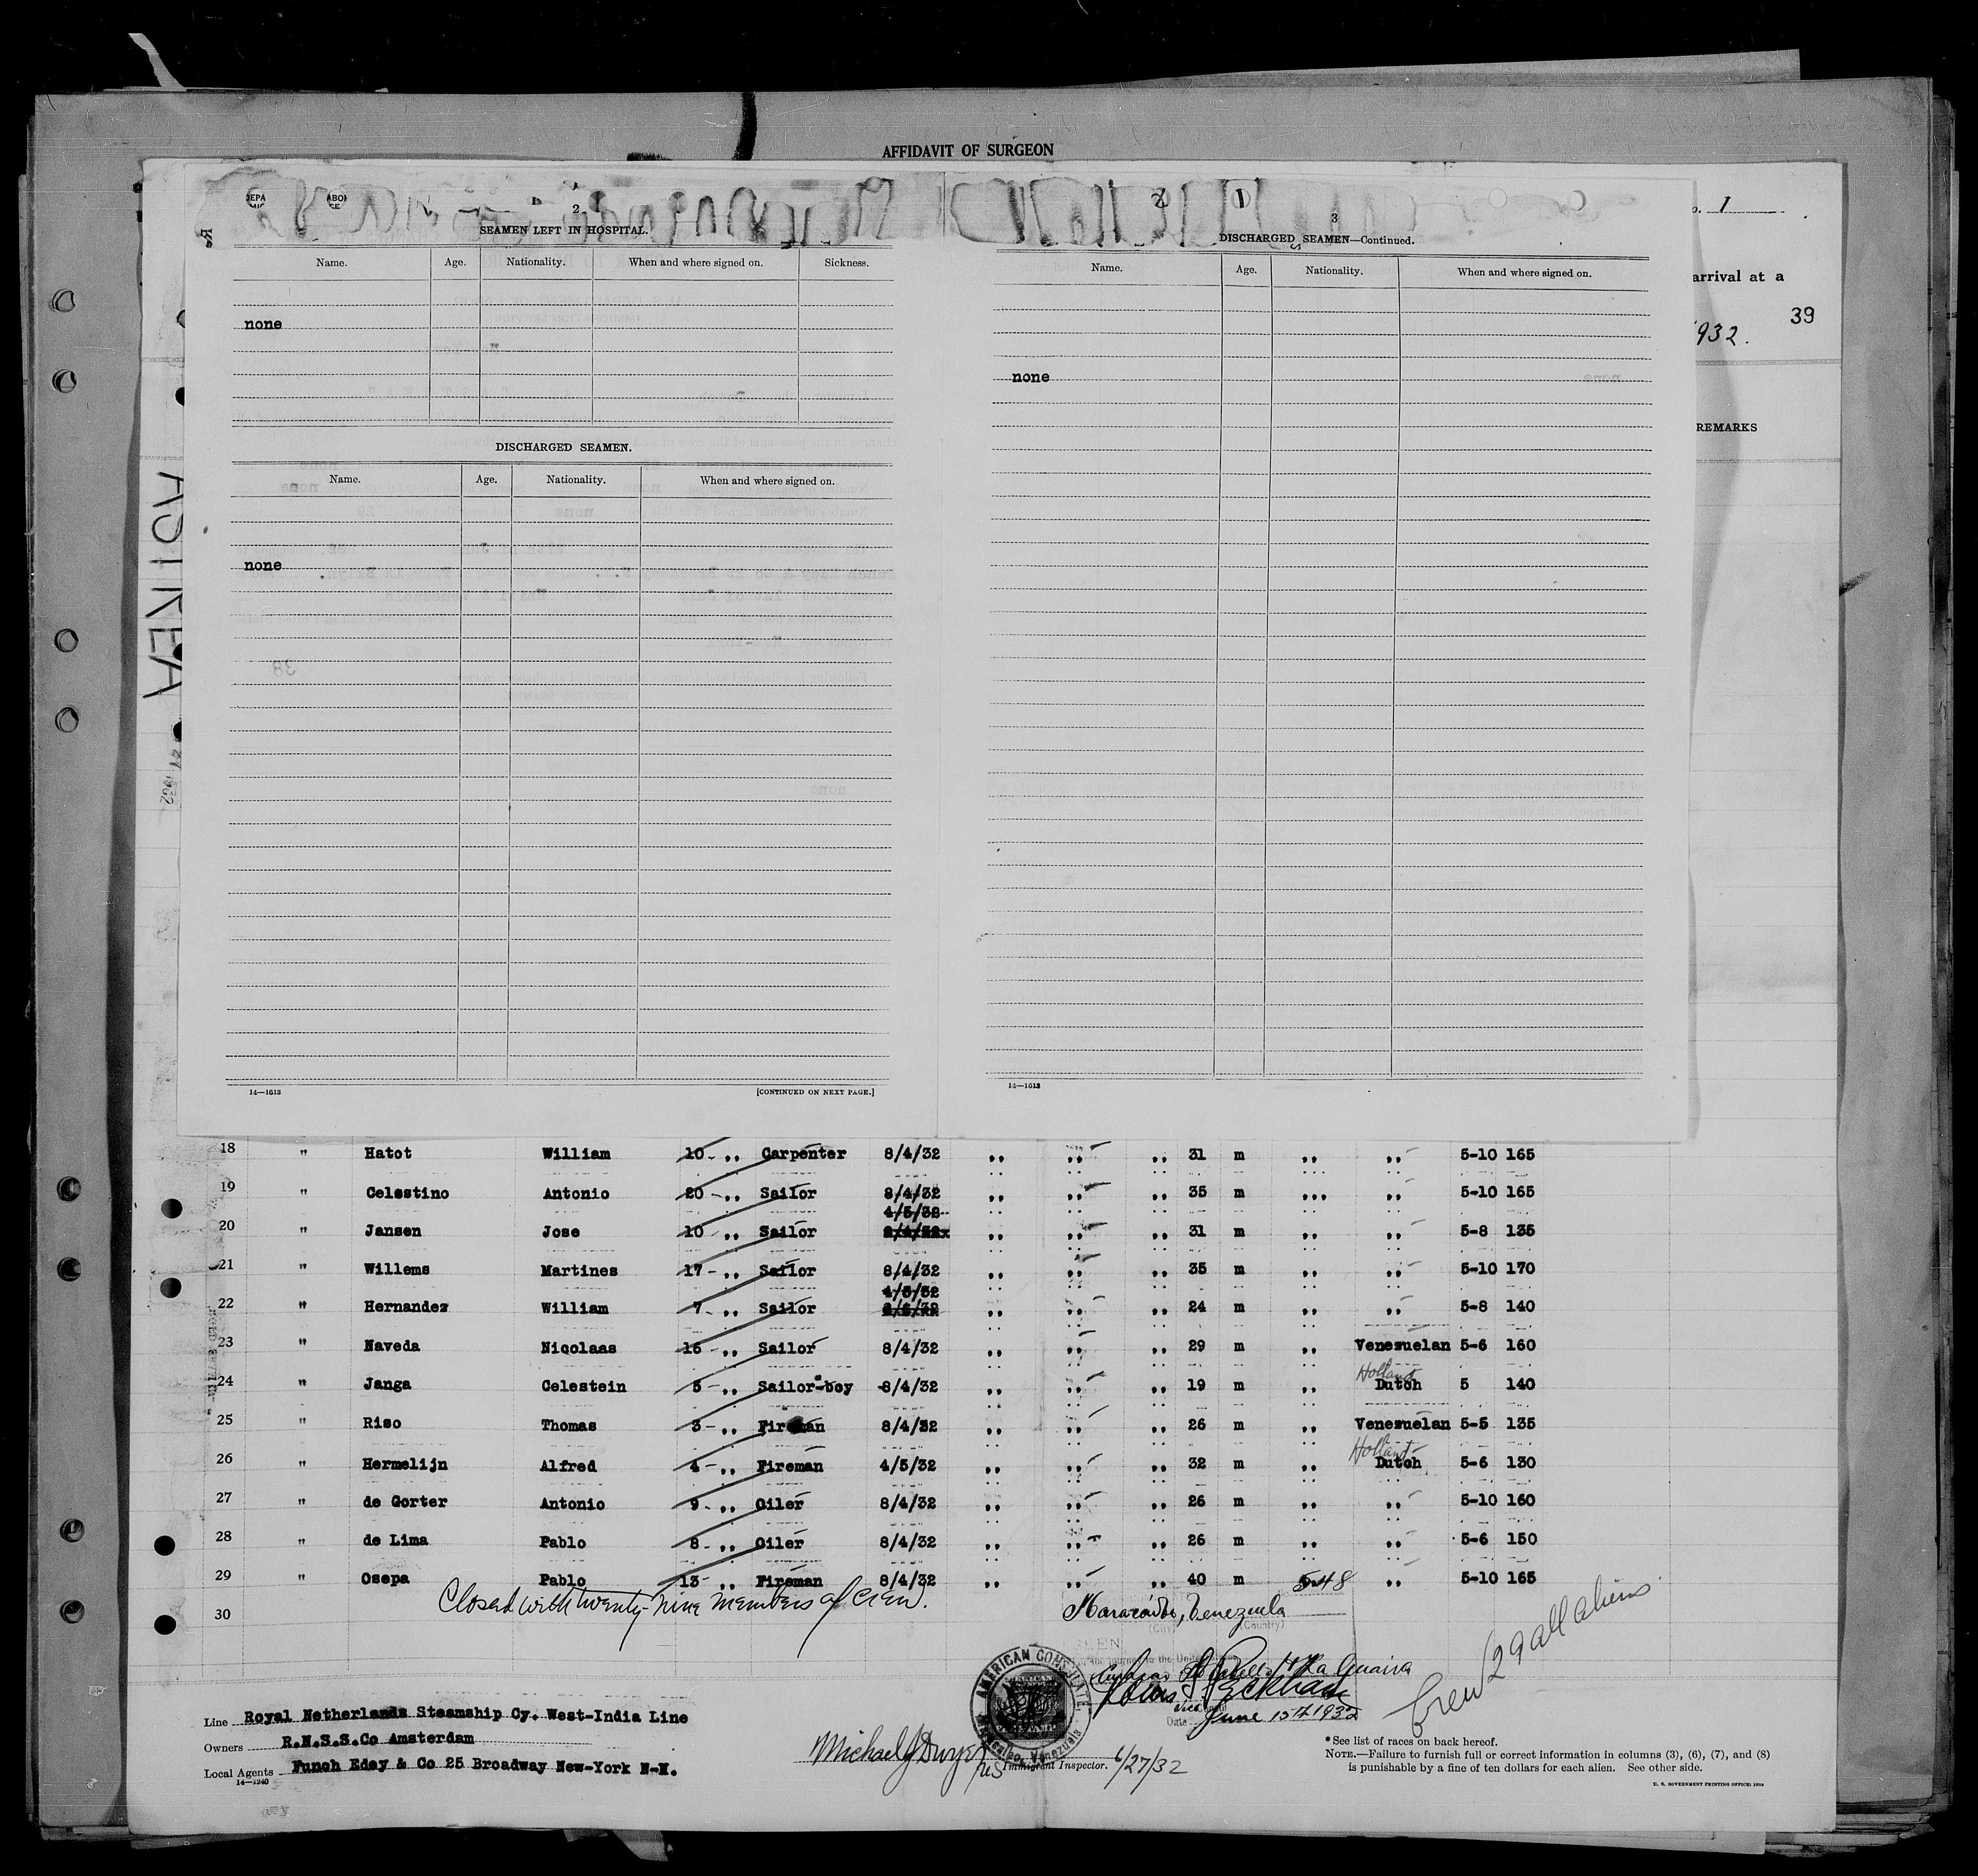 AFFIDAVIT OF SURGEON
2
SEAMEN LEFT IN HOSPITAL.
Name. Age. Nationality. When and where signed on. Sickness.
none
DISCHARGED SEAMEN.
Name. Age. Nationality. When and where signed on.
none
14—1613 [CONTINUED ON NEXT PAGE.]
3
DISCHARGED SEAMEN—Continued.
Name. Age. Nationality. When and where signed on.
none
14—1613
1
arrival at a
39
1932.
REMARKS
ASTREA
18 " Hatot William 10 - ,, Carpenter 8/4/32 ,, ,, ,, 31 m ,, ,, 5-10 165
19 " Celestino Antonio 20 - ,, Sailor 8/4/32 ,, ,, ,, 35 m ,,, ,, 5-10 165
20 " Jansen Jose 10 - ,, Sailor 4/5/32 ,, ,, ,, 31 m ,, ,, 5-8 135
21 " Willems Martines 17 - ,, Sailor 8/4/32 ,, ,, ,, 35 m ,, ,, 5-10 170
22 " Hernandez William 7 - ,, Sailor 4/5/32 ,, ,, ,, 24 m ,, ,, 5-8 140
23 " Naveda Niqolaas 16 - ,, Sailor 8/4/32 ,, ,, ,, 29 m ,, Venezuelan 5-6 160
Holland
24 " Janga Celestein 5 - ,, Sailor-boy 8/4/32 ,, ,, ,, 19 m ,, Dutch 5 140
25 " Riso Thomas 3 - ,, Fireman 8/4/32 ,, ,, ,, 26 m ,, Venezuelan 5-5 135
Holland
26 " Hermelijn Alfred 4 - ,, Fireman 4/5/32 ,, ,, ,, 32 m ,, Dutch 5-6 130
27 " de Gorter Antonio 9 - ,, Oiler 8/4/32 ,, ,, ,, 26 m ,, ,, 5-10 160
28 " de Lima Pablo 8 - ,, Oiler 8/4/32 ,, ,, ,, 26 m ,, ,, 5-6 150
29 " Osepa Pablo 13 - ,, Fireman 8/4/32 ,, ,, ,, 40 m 548 ,, 5-10 165
Closed with twenty-nine members of crew.
30 Maracaibo, Venezuela
(City) (Country)
La Guaira
AMERICAN CONSULATE
Maracaibo, Venezuela
Peckham
Vice
Date June 15th 1932
Crew 29 all aliens
Line Royal Netherlands Steamship Cy. West-India Line
Owners R.N.S.S.Co Amsterdam
Local Agents Funch Edey & Co 25 Broadway New-York N-N.
14—1240
Michael J Dwyer
Immigrant Inspector. 6/27/32
*See list of races on back hereof.
NOTE.—Failure to furnish full or correct information in columns (3), (6), (7), and (8)
is punishable by a fine of ten dollars for each alien. See other side.
U. S. GOVERNMENT PRINTING OFFICE: 1929